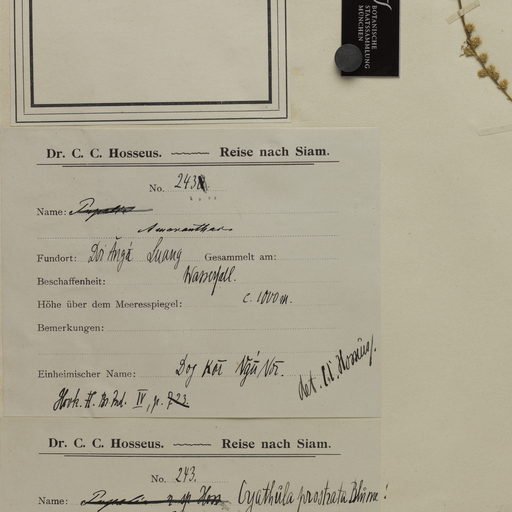 BOTANISCHE
STAATSSAMMLUNG
MÜNCHEN
Dr. C. C. Hosseus. Reise nach Siam.
No. 243
Name: Pupalia
Amaranthac
Fundort: Doi Anga Luang Gesammelt am:
Beschaffenheit: Wasserfall.
Höhe über dem Meeresspiegel: c. 1000 m.
Bemerkungen:
Einheimischer Name: Doy
det. C.C. Hosseus.
Hook. Fl. Br. Ind. IV, p. 723.
Dr. C. C. Hosseus. Reise nach Siam.
No. 243.
Name: Pupalia n. sp. Hoss. Cyathula prostrata Blume!